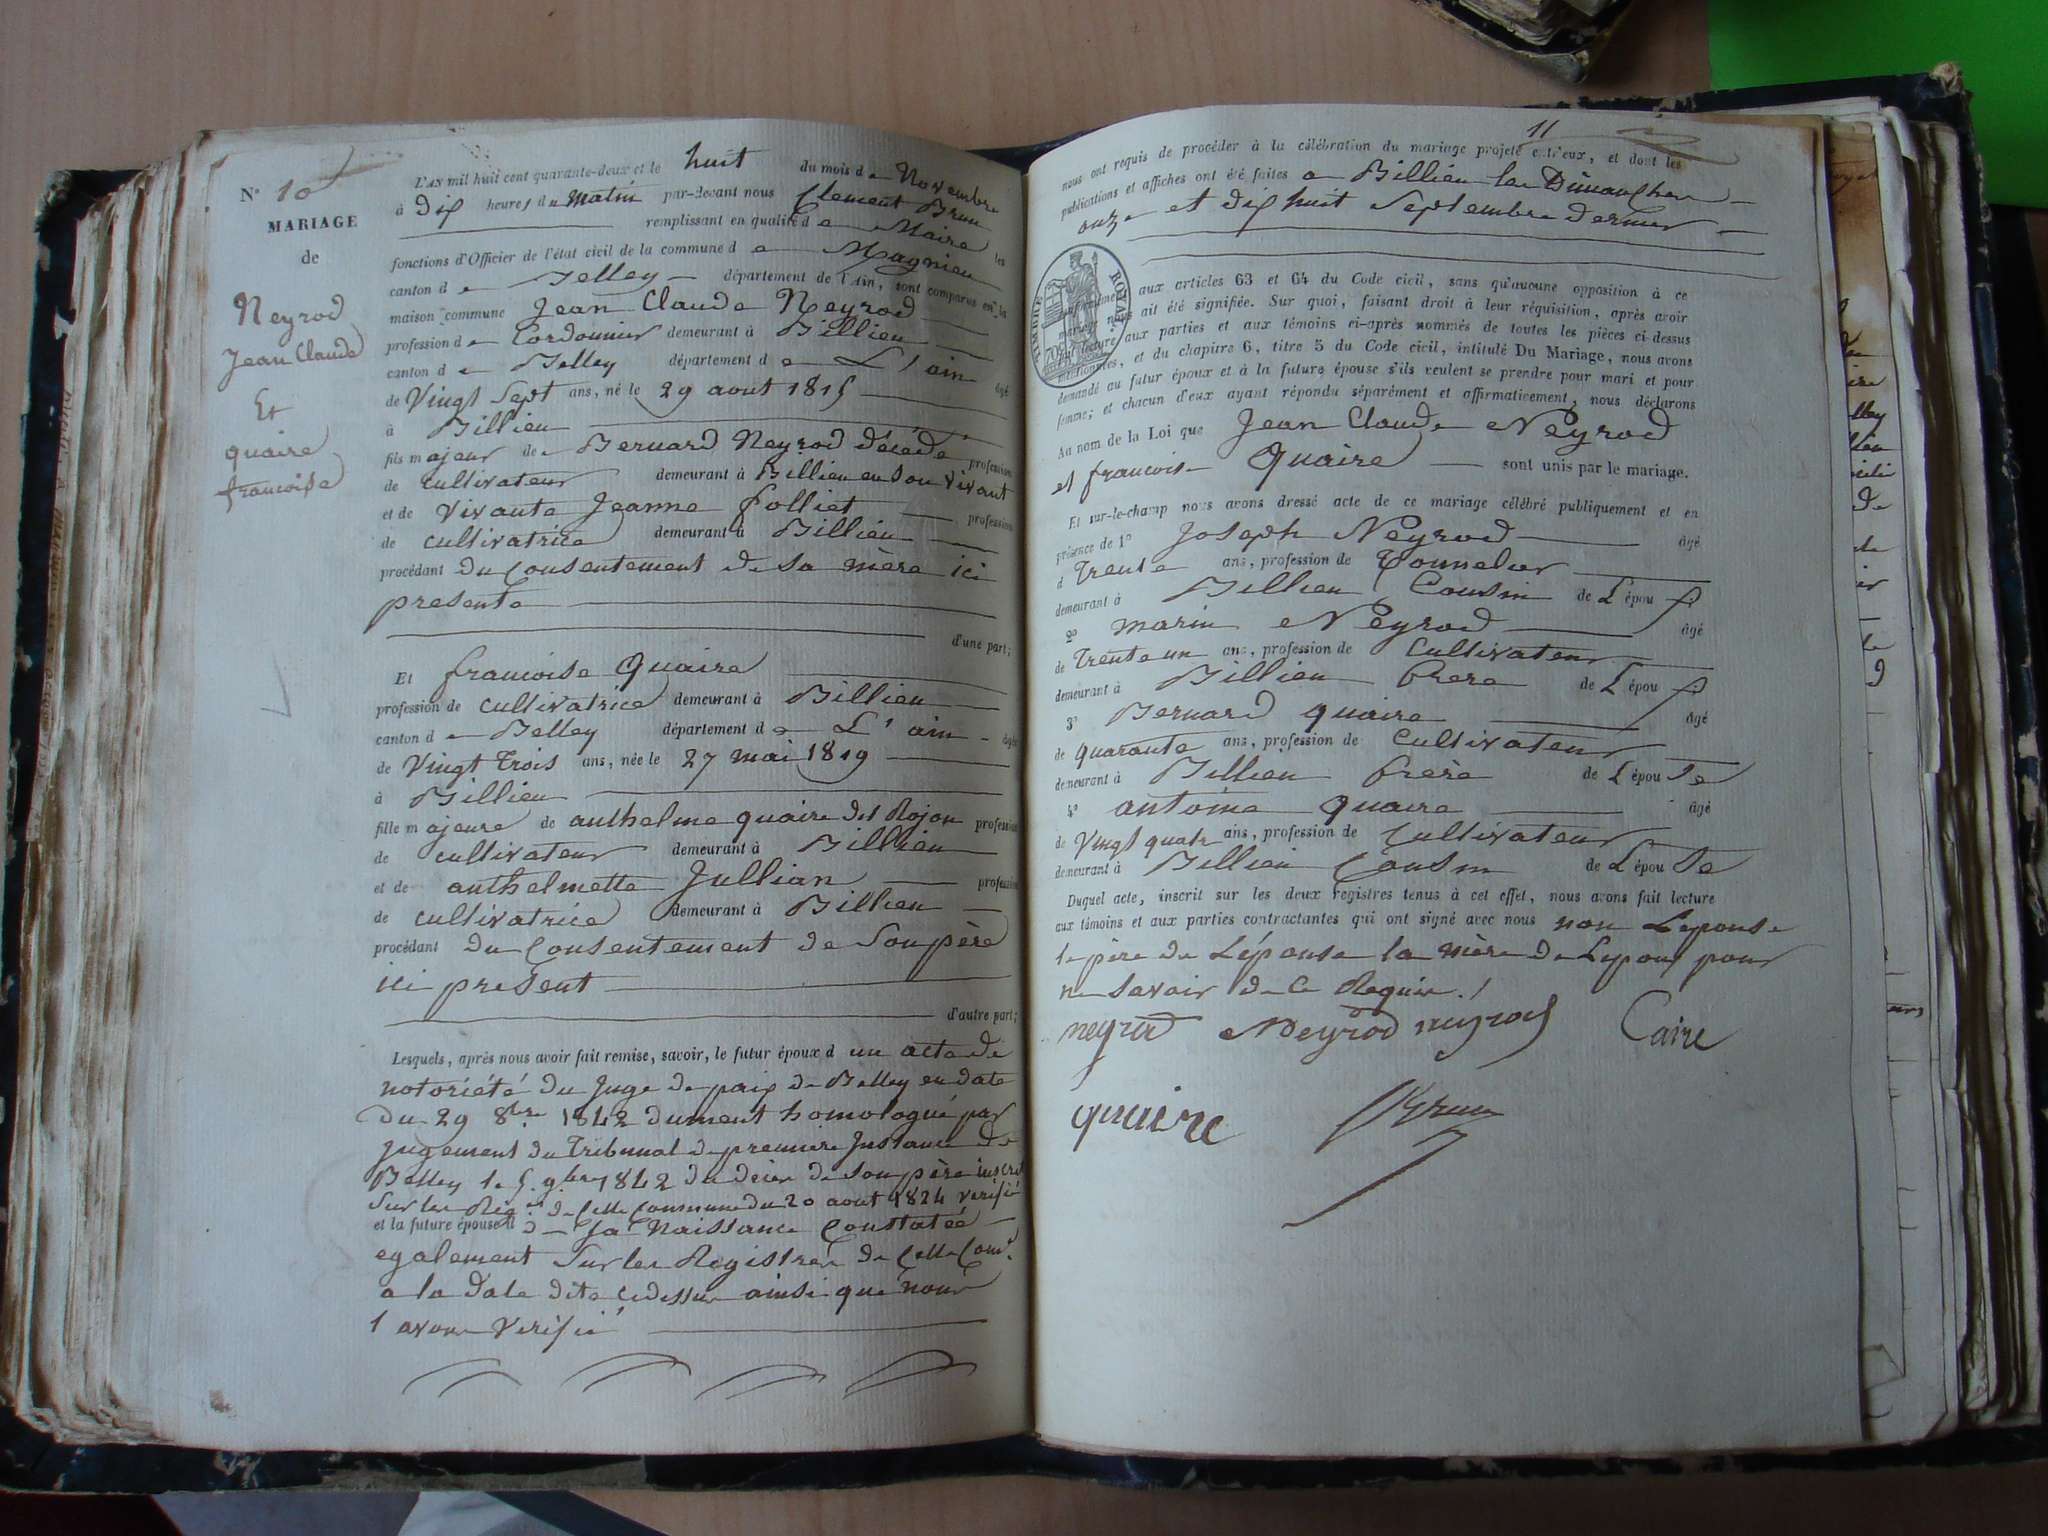 N° 10
MARIAGE
de
Neyrod
Jean Claude
Et
quaire
francoise
L'AN mil huit cent quarante-deux et le huit du mois de Novembre
à Dix heures du Matin par-devant nous Clement Brun
remplissant en qualité de Maire les
fonctions d'Officier de l'état civil de la commune de Magnieu
canton de Belley département de l'Ain, sont comparus en la
maison commune Jean Claude Neyrod
profession de Cordonnier demeurant à Billieu
canton de Belley département de L'ain âgé
de Vingt Sept ans, né le 29 aout 1815
à Billieu
fils majeur de Bernard Neyrod Décédé profession
de cultivateur demeurant à Billieu en Son Vivant
et de Vivante Jeanne Polliet profession
de cultivatrice demeurant à Billieu
procédant du Consentement de Sa mère ici
presente
d'une part;
Et francoise Quaire
profession de cultivatrice demeurant à Billieu
canton de Belley département de L'ain âgée
de Vingt Trois ans, née le 27 mai 1819
à Billieu
fille majeure de anthelme quaire dit Rojon profession
de cultivateur demeurant à Billieu
et de anthelmette Jullian profession
de cultivatrice demeurant à Billieu
procédant du Consentement de Son père
ici present
d'autre part;
Lesquels, après nous avoir fait remise, savoir, le futur époux d un acte de
notoriété du Juge de paix de Belley en date
Du 29 8bre 1842 dument homologué par
jugement du Tribunal de premiere Instance de
Belley le 5 9bre 1842 du décès de Son père inscrit
Sur les Reg.es de Cette Commune du 20 aout 1824 verifié
et la future épouse de Sa Naissance Constatée
egalement Sur les Registres de Cette Com.e
a la Date dite cidessus ainsi que nous
l avons Verifié
11
nous ont requis de procéder à la célébration du mariage projeté entr'eux, et dont les
publications et affiches ont été faites a Billieu les Dimanches
onze et dix huit Septembre dernier
TIMBRE ROYAL
conformément aux articles 63 et 64 du Code civil, sans qu'aucune opposition à ce
mariage nous ait été signifiée. Sur quoi, faisant droit à leur réquisition, après avoir
donné lecture aux parties et aux témoins ci-après nommés de toutes les pièces ci-dessus
mentionnées, et du chapitre 6, titre 5 du Code civil, intitulé Du Mariage, nous avons
demandé au futur époux et à la future épouse s'ils veulent se prendre pour mari et pour
femme; et chacun d'eux ayant répondu séparément et affirmativement, nous déclarons
Au nom de la Loi que Jean Claude Neyrod
et francoise Quaire sont unis par le mariage.
Et sur-le-champ nous avons dressé acte de ce mariage célébré publiquement et en
présence de 1° Joseph Neyrod âgé
d Trente ans, profession de Tonnelier
demeurant à Billieu Cousin de L'époux
2° marin Neyrod âgé
de Trente un ans, profession de Cultivateur
demeurant à Billieu frere de L'époux
3° Bernard quaire âgé
de quarante ans, profession de Cultivateur
demeurant à Billieu frère de L'épouse
4° antoine quaire âgé
de Vingt quatre ans, profession de Cultivateur
demeurant à Billieu Cousin de L'épouse
Duquel acte, inscrit sur les deux registres tenus à cet effet, nous avons fait lecture
aux témoins et aux parties contractantes qui ont signé avec nous non L'épouse
le père de L'épouse la mère de L'epoux pour
ne Savoir de Ce Requis./
neyrod Neyrod neyrod Caire
quaire Brun